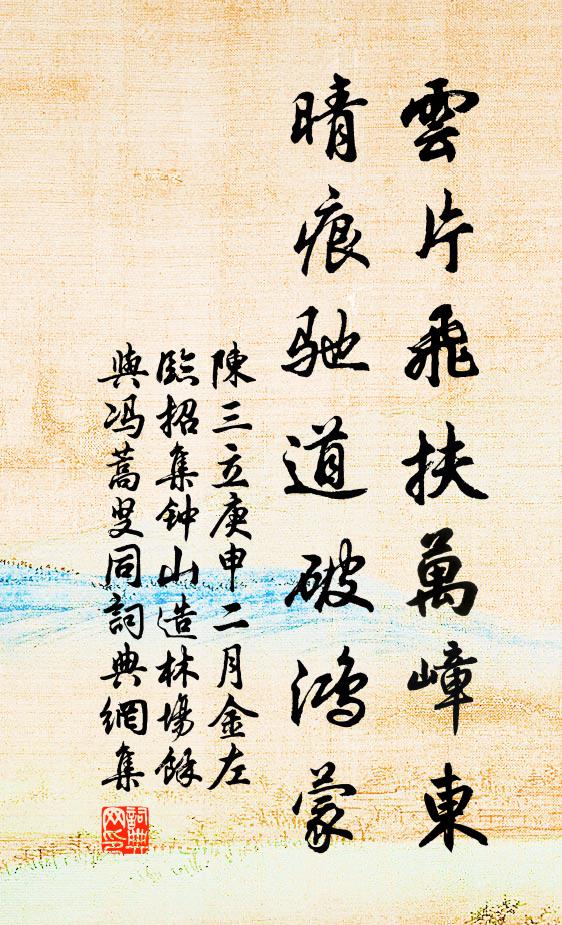 雲片飛扶萬嶂東
晴痕馳道破鴻蒙
陳三立庚申二月金左
臨招集钟山造林場餘
與冯蒿叟同詞典網集
詞典網印